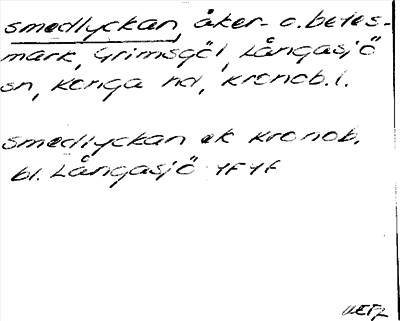 smedlyckan, åker- o. betes-
mark, Grimsgöl, Långasjö
sn, Konga hd, Kronob. l.
smedlyckan ek Kronob.
bl. Långasjö 4F4f